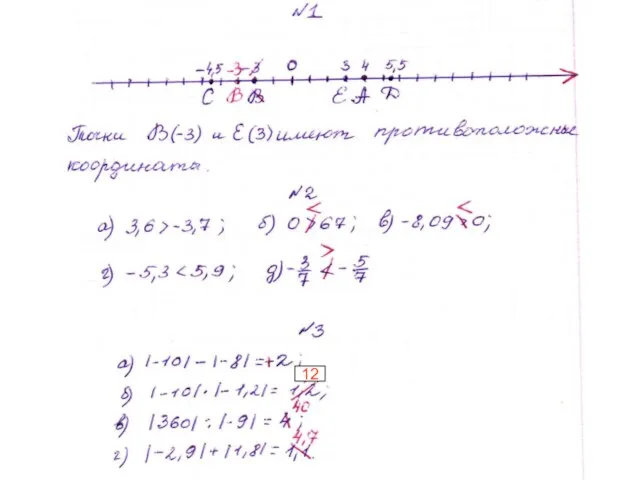 №1
-4,5 -3 -3 0 3 4 5,5
C B B E A D
Точки B(-3) и E(3) имеют противоположные
координаты.
№2
<
<
а) 3,6 > -3,7 ; б) 0 > 67 ; в) -8,09 > 0;
>
г) -5,3 < 5,9 ; д) -3/7 < -5/7
№3
а) |-10| - |-8| = +2 ;
12
б) |-10| · |-1,2| = 1,2;
40
в) |360| : |-9| = 4;
4,7
г) |-2,9| + |1,8| = 1,1.